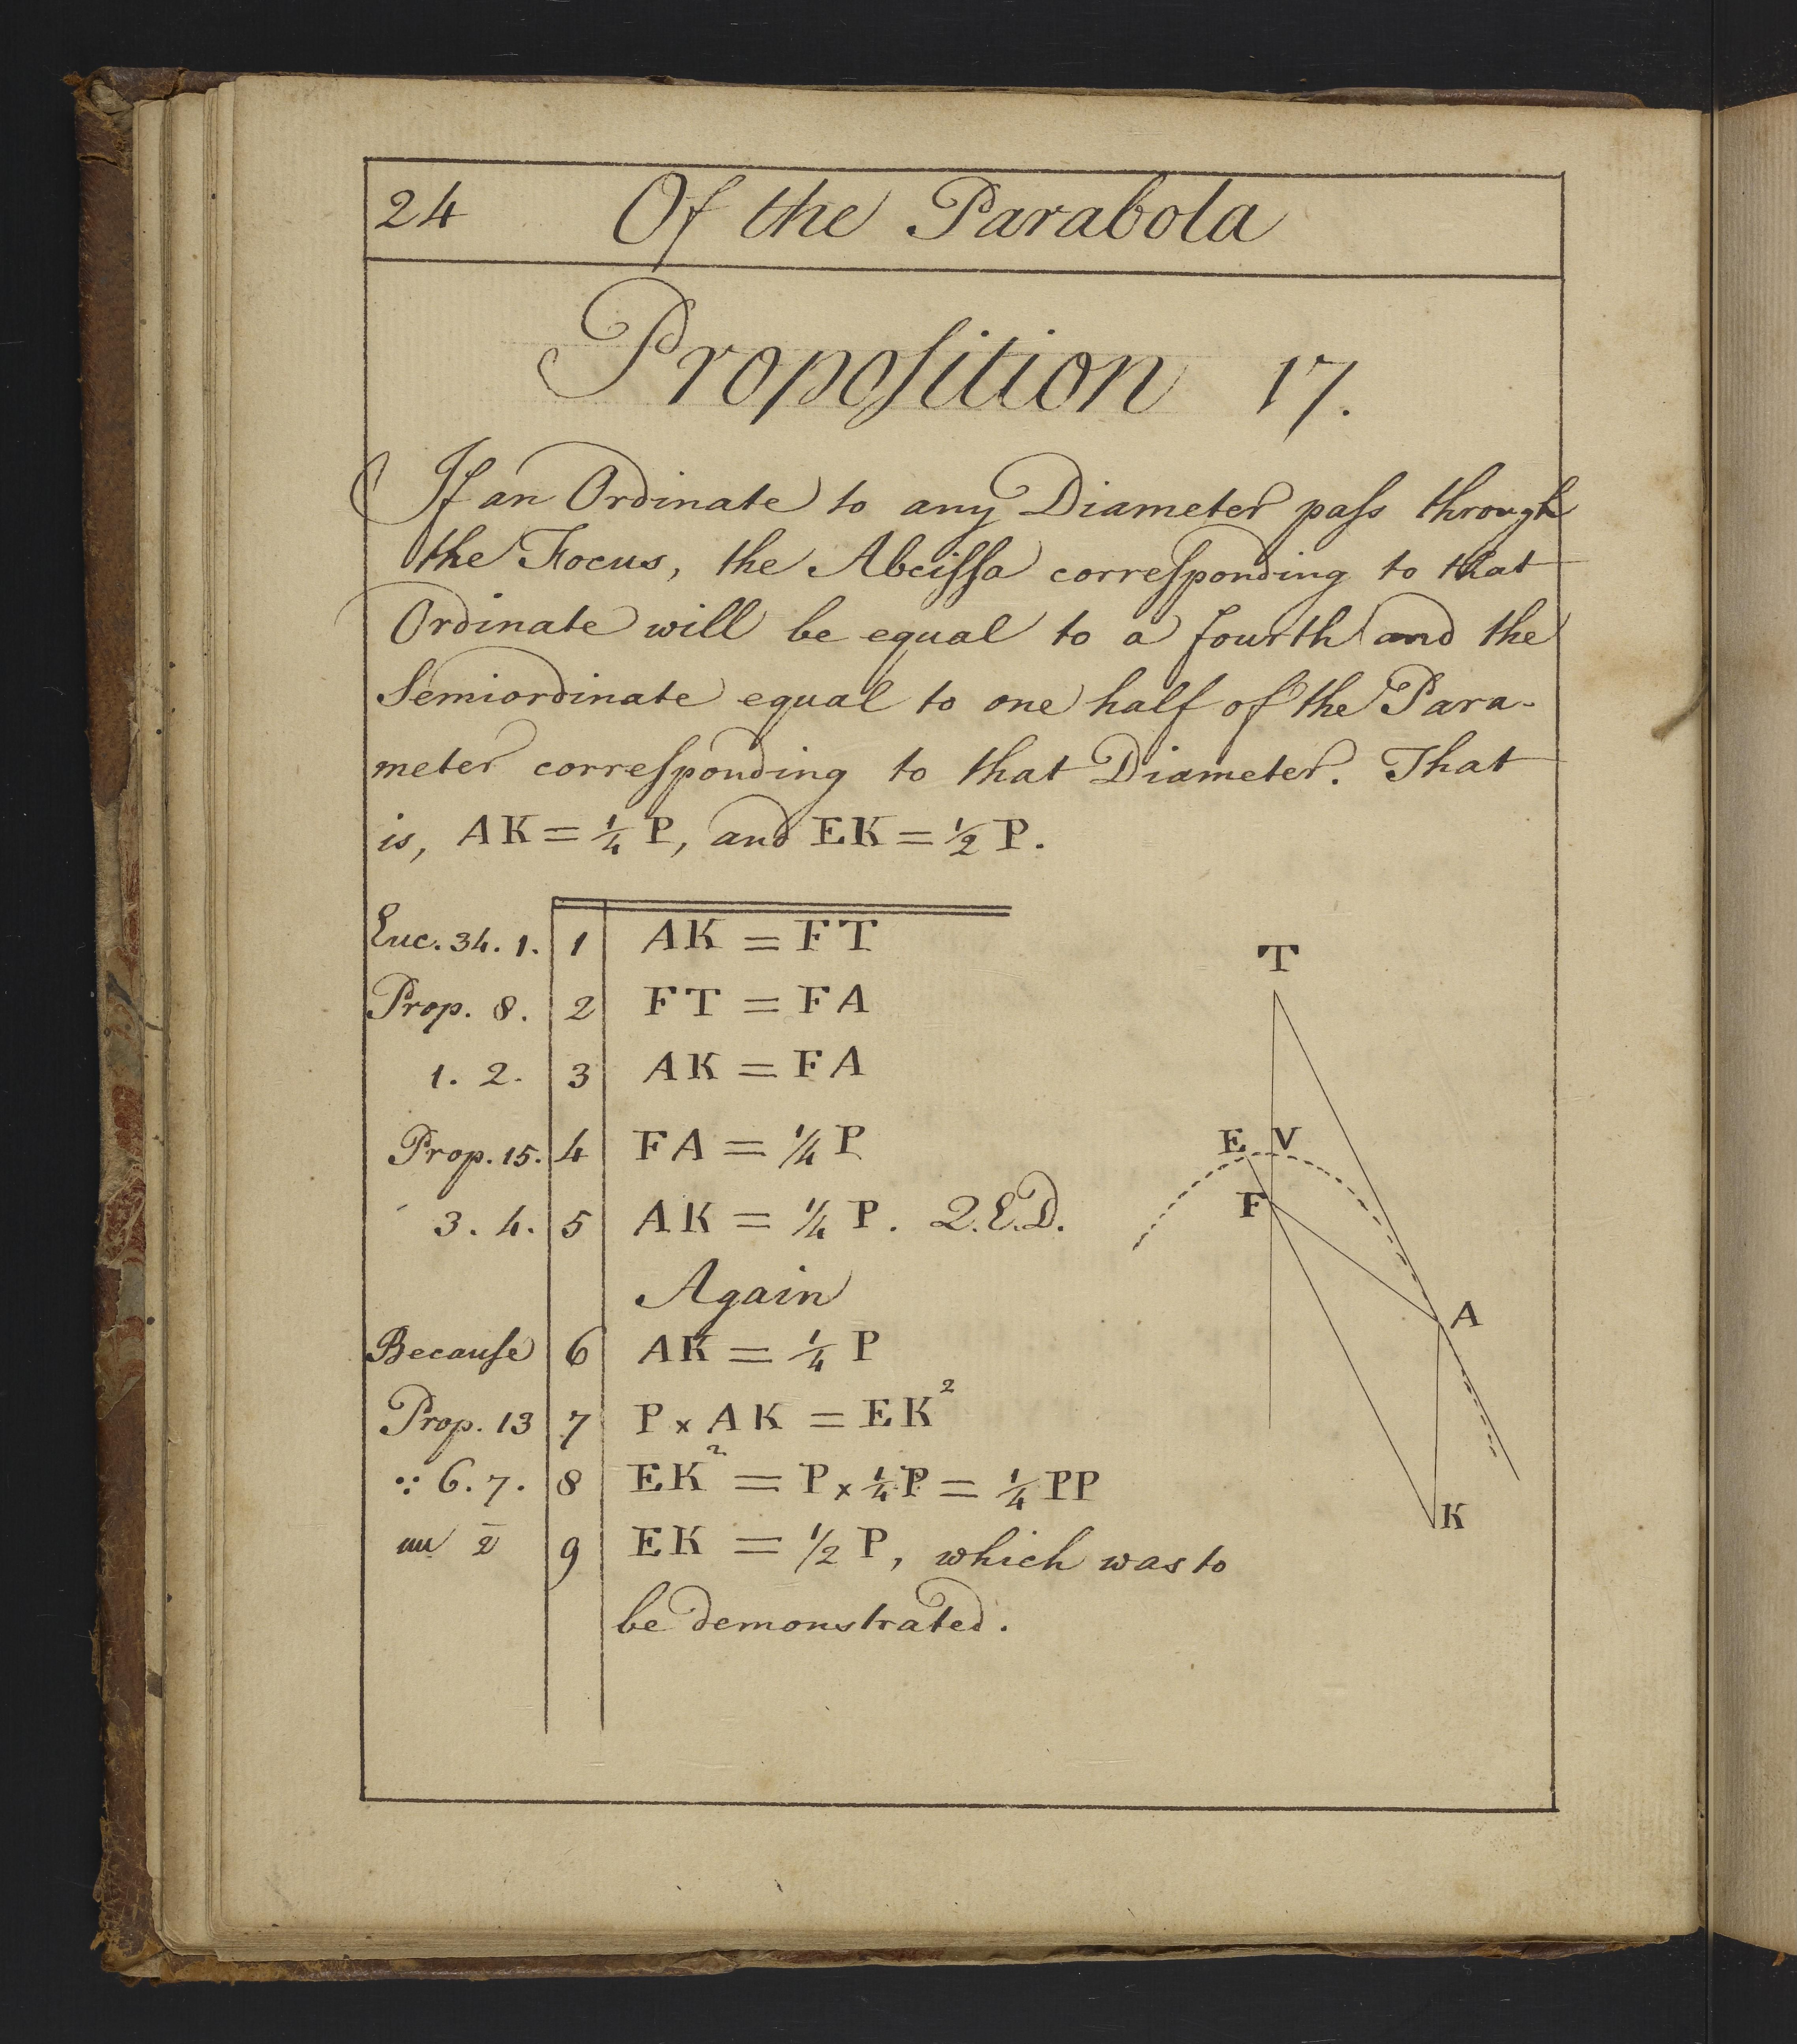 24 Of the Parabola
Propoſition 17.
If an Ordinate to any Diameter paſs through
the Focus, the Abciſſa correſponding to that
Ordinate will be equal to a fourth and the
Semiordinate equal to one half of the Para-
meter correſponding to that Diameter. That
is, AK = ¼ P, and EK = ½ P.
Euc. 34. 1. 1 AK = FT
Prop. 8. 2 FT = FA
1. 2. 3 AK = FA
Prop. 15. 4 FA = ¼ P
3. 4. 5 AK = ¼ P. Q.E.D.
Again
Becauſe 6 AK = ¼ P
Prop. 13 7 P × AK = EK²
∵ 6. 7. 8 EK² = P × ¼ P = ¼ PP
uu 2 9 EK = ½ P, which was to
be demonstrated.
T
E V
F
A
K